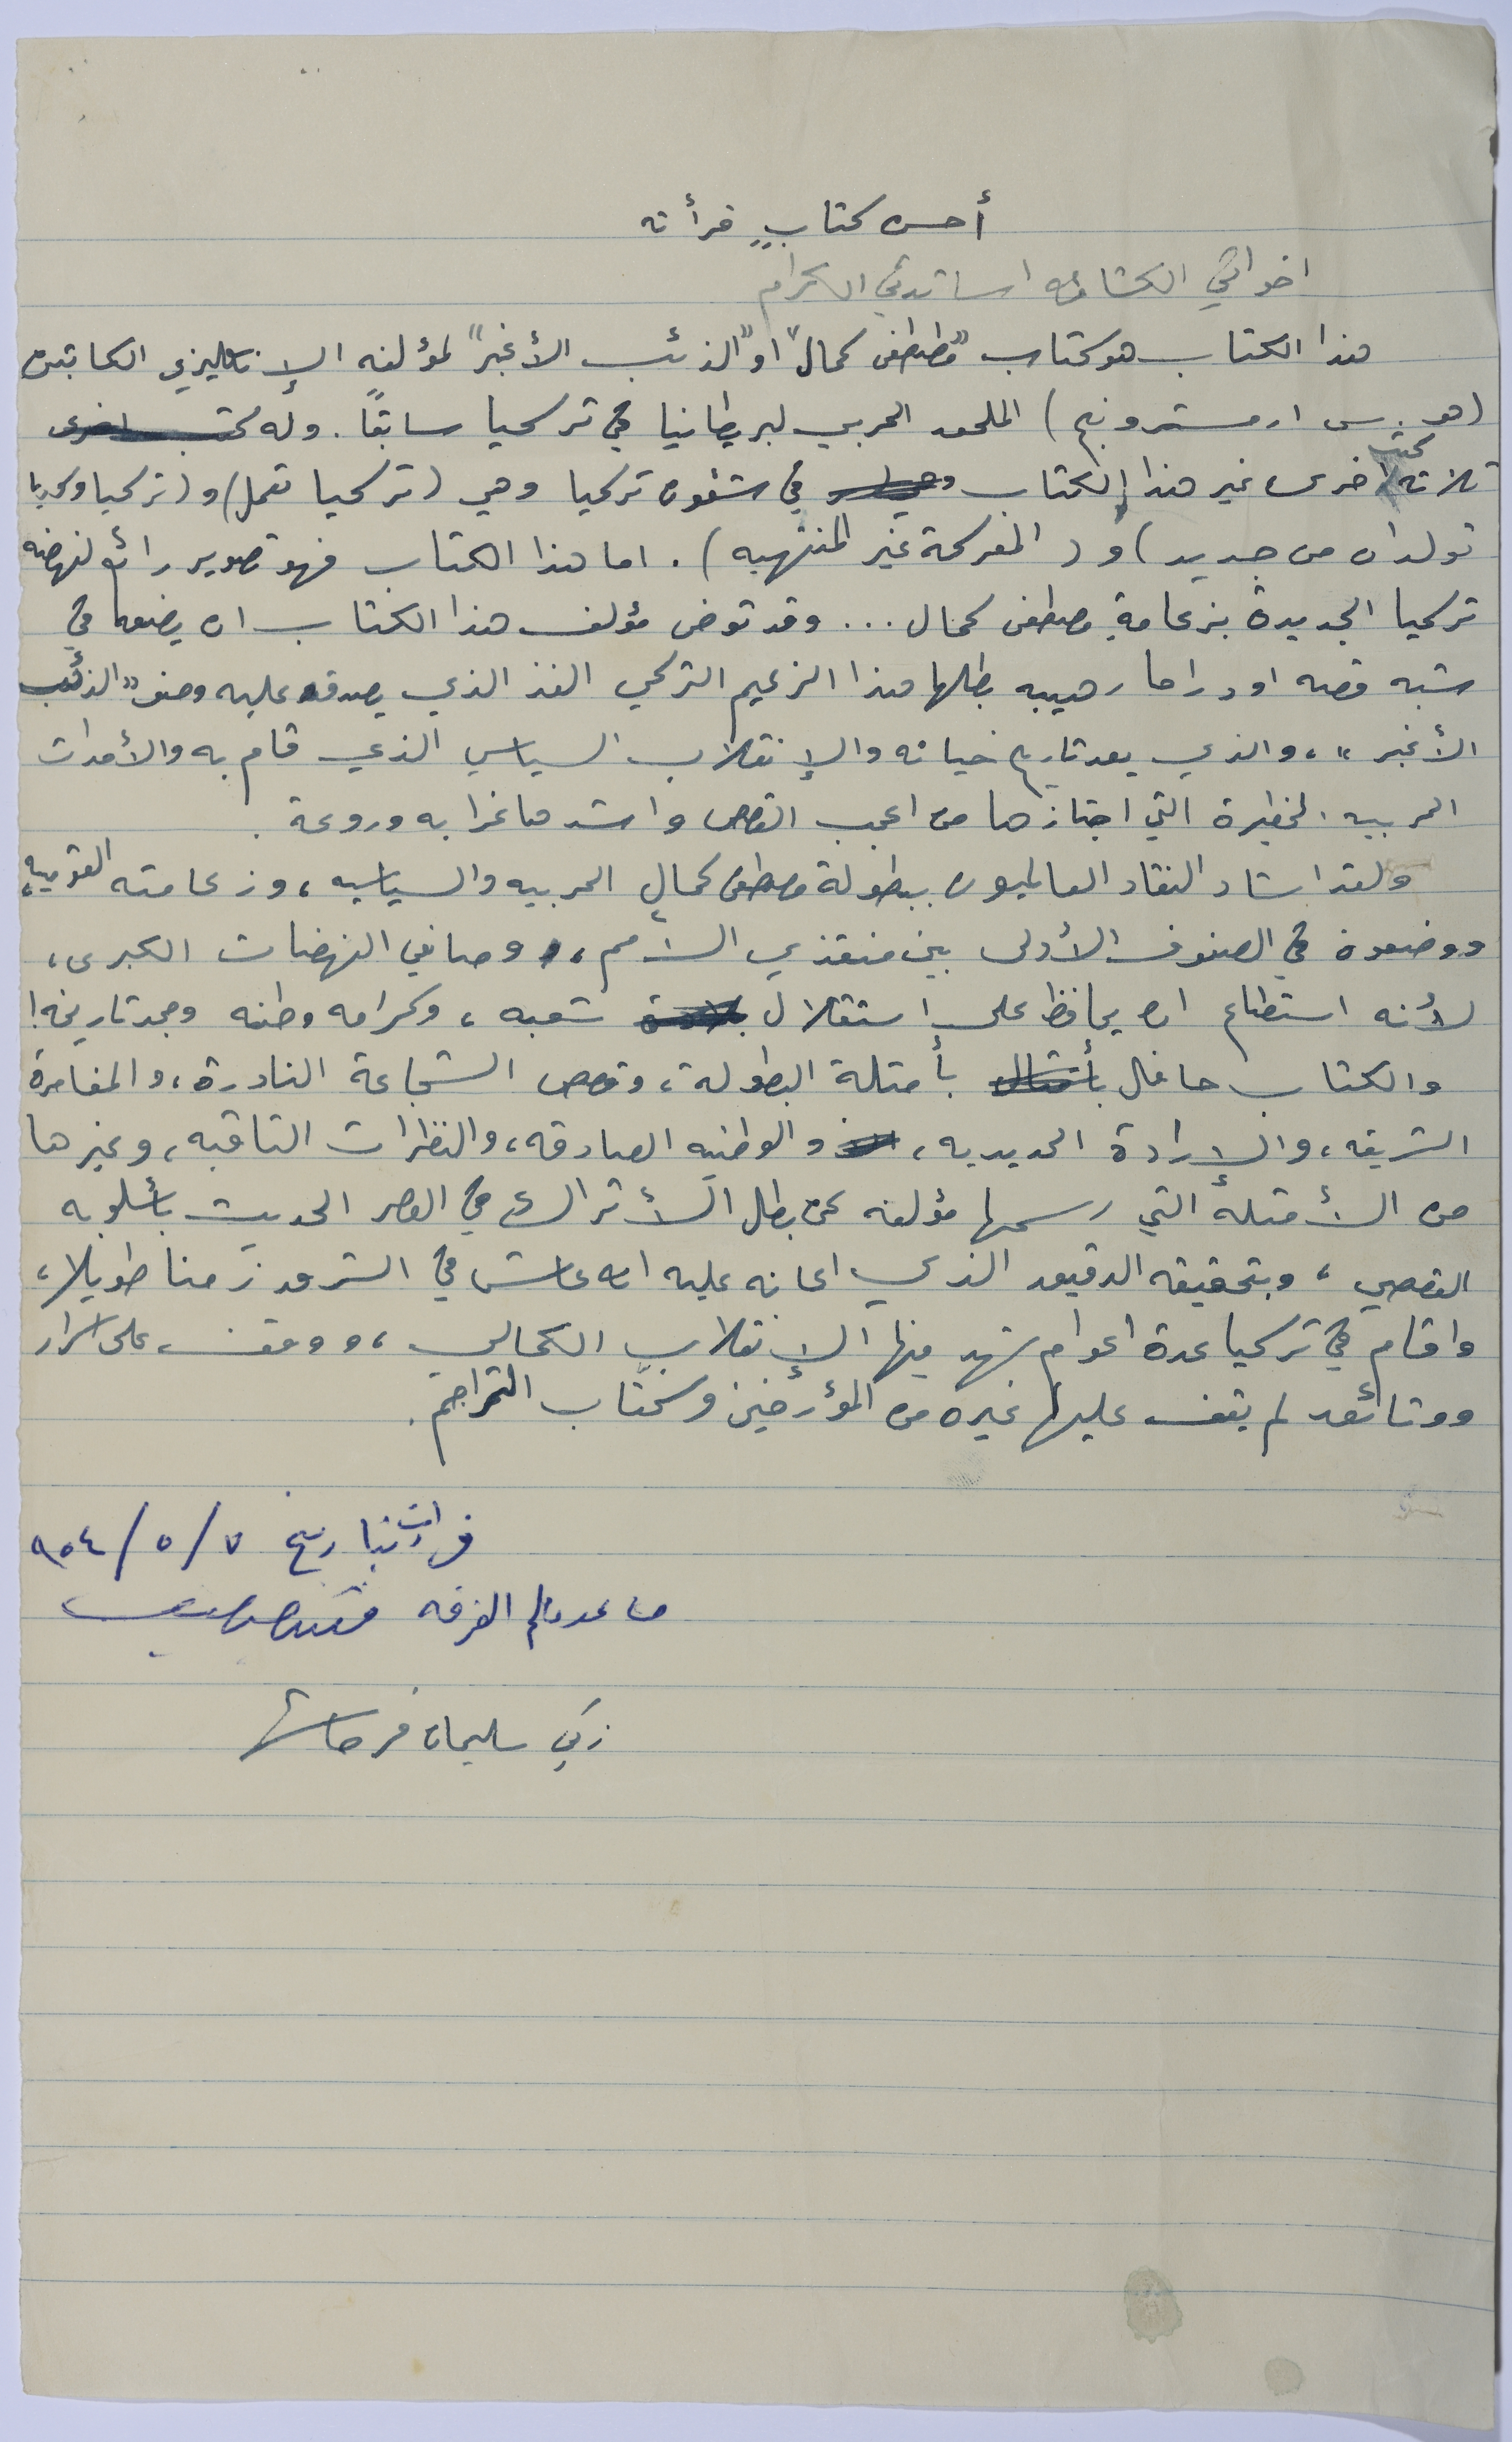 أحسن كتابٍ قرأته
اخواني الكشافه اساتذتي الكرام
هذا الكتاب هو كتاب "مصطفى كمال" او "الذئب الأغبر" لمؤلفه الإنكليزي الكابتن
(هو. س ارمسترونج) الملحق الحربي لبريطانيا في تركيا سابقاً. وله كتب اخرى
ثلاثة كتب اخرى غير هذا الكتاب وهي في شئون تركيا وهي (تركيا تعمل) و (تركيا وسوريا
تولدان من جديد) و (المعركة غير المنتهيه). اما هذا الكتاب فهو تصوير رائع لنهضه
تركيا الجديدة بزعامةِ مصطفى كمال... وقد توخى مؤلف هذا الكتاب ان يضعها في
شبه قصه او دراما رهيبه بطلها هذا الزعيم التركي الفذ الذي يصدق عليه وصف "الذئب
الأغبر"، والذي يعد تاريخ حياته والإنقلاب السياسي الذي قام به والأحداث
الحربيه الخطيرة التي اجتازها من اعجب القصص واشدها غرابه وروعة.
ولقد اشاد النقاد العالميون ببطولة مصطفى كمال الحربيه والسياسيه، وزعامته القوميه،
ووضعوه في الصفوف الأولى بين منقذي الأمم، وصانعي النهضات الكبرى،
لأنه استطاع ان يحافظ على استقلال بلاده شعبه، وكرامه وطنه ومجد تاريخه!
والكتاب حافل بأمثال بأمثلة البطولة، وقصص الشجاعة النادرة، والمغامرة
الشريفه، والإرادة الحديديه، والوطنيه الصادقه، والنظرات الثاقبه، وغيرها
من الأمثلة التي رسمها مؤلفه عن بطل الأتراك في العصر الحديث بأسلوبه
القصصي، وبتحقيقه الدقيق الذي اعانه عليه انه عاش في الشرق زمنا طويلا،
واقام في تركيا عدة اعوام شهد فيها الإنقلاب الكمالي، ووقف على اسرار
ووثائق لم يقف عليها غيره من المؤرخين وكتّاب التراجم.
قرأت بتاريخ ٧/٥/٩٥٤
مساعد معلم الفرقه
زكي سليمان